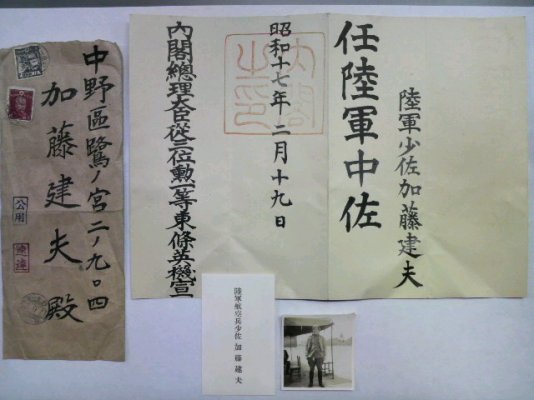 陸軍少佐加藤建夫
任陸軍中佐
昭和十七年二月十九日
内閣總理大臣從三位勳一等東條英機宣
内閣之印
中野區鷺ノ宮二ノ九〇四
加藤建夫殿
公用
速達
陸軍航空兵少佐 加藤建夫